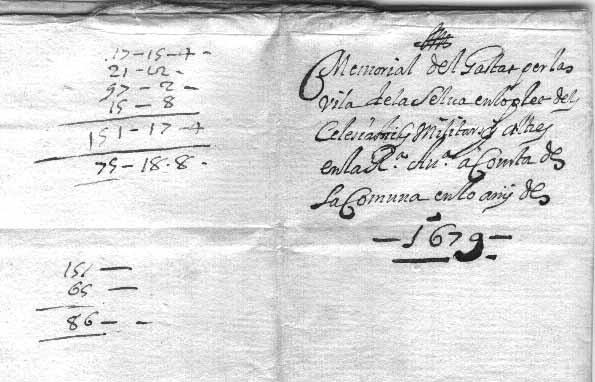 17-15-4-
21-12-
97-2-
15-8
151-17-4
75-18-8-
151-
65-
86--
Memorial del Gastat per la
Vila de la Selva en lo plet dels
Militars y altres
en la Rª. Auª. a Consta de
La Comuna en lo any de
-1679-